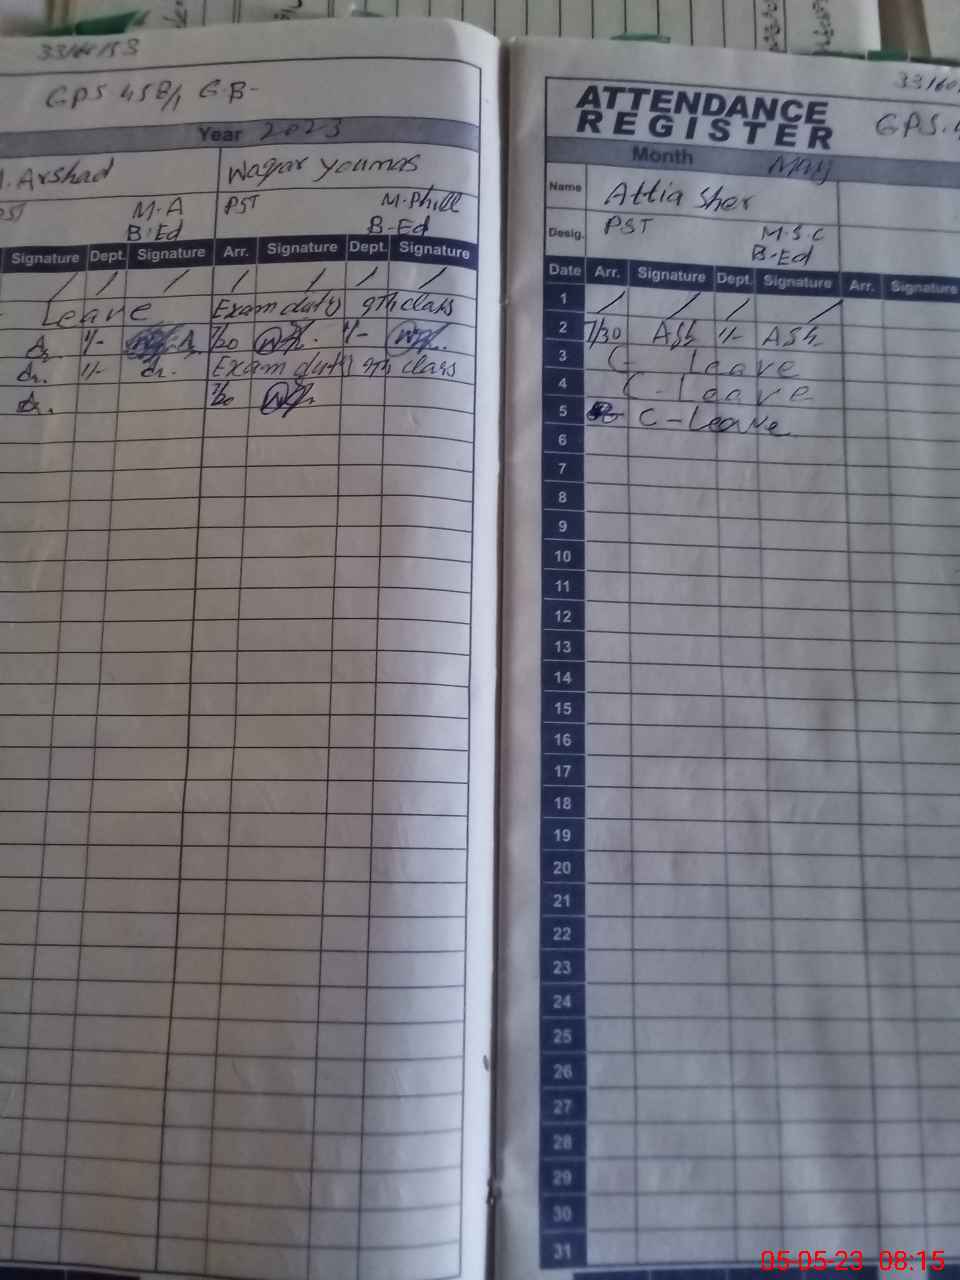 33160153
GPS 458/1 G.B-
Year 2023
Arshad
Waqar Younas
PST
M.A
B.Ed
PST
M.Phill
B-Ed
Signature Dept. Signature Arr. Signature Dept. Signature
Leave Exam duty 9th class
1/- 7/30 1/-
1/- Exam duty 9th class
7/30
33160
ATTENDANCE
REGISTER
GPS.
Month May
Name Attia Sher
Desig. PST M.S.C
B-Ed
Date Arr. Signature Dept. Signature Arr. Signature
1
2 7/30 Ash 1/- Ash
3 C- Leave
4 C-Leave
5 C-Leave
6
7
8
9
10
11
12
13
14
15
16
17
18
19
20
21
22
23
24
25
26
27
28
29
30
31
05-05-23 08:15